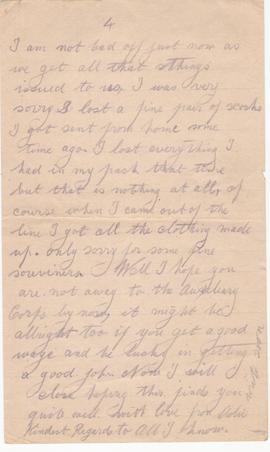 4
I am not bad off just now as
we get all that things
issued to us, I was very
sorry I lost a fine pair of socks
I got sent from home some
time ago. I lost everything I
had in my pack that time
but that is nothing at all, of
course when I came out of the
line I got all the clothing made
up. only sorry for some fine
souviners. Well I hope you
are not away to the Auxiliary
Corps by now, it might be
allright too if you get a good
wage and be lucky in getting
a good job. Now I will
close hoping this finds you
quite well. with love from
Kindest Regards to All I know.